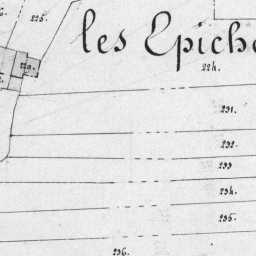 225.
les Epiche
224.
229.
231.
232.
233
234.
235.
236.